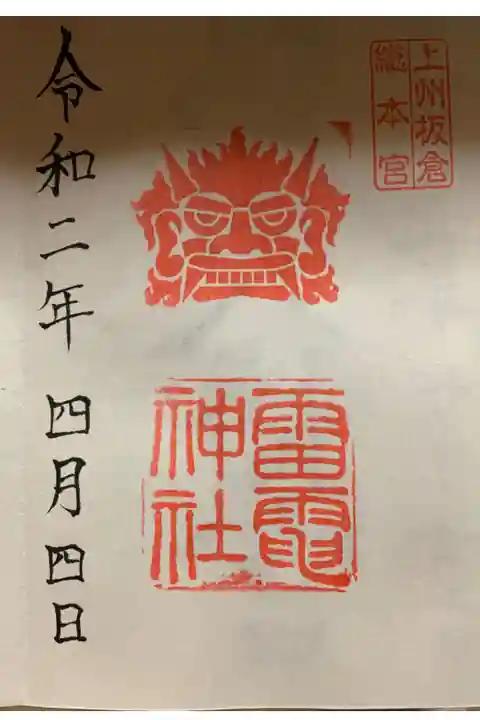 上州板倉
総本宮
雷電
神社
令和二年 四月四日